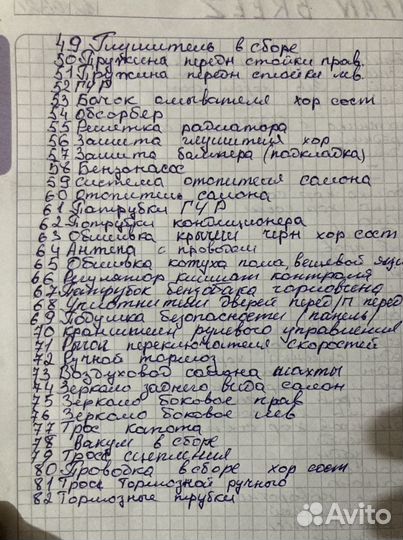 49 Глушитель в сборе
50 Пружина передн стойки прав.
51 Пружина передн стойки лев.
52 ГУР
53 Бачок омывателя хор сост
54 Обсорбер
55 Решетка радиатора
56 Защита глушителя хор
57 Защита бампера (подкладка)
58 Бензонасос
59 система отопителя салона
60 Отопитель салона
61 Патрубки ГУР
62 Патрубки кондиционера
63 Обшивка крыши черн хор сост
64 Антена с проводом
65 Обшивка кожуха пола, вещевой ящик
66 климат контроля
67 Патрубок бензобака горловина
68 Уплотнители дверей перед/п перед
69 Подушка безопасности (панель)
70 кранштейн рулевого управления
71 Рычаг переключателя скоростей
72 Ручной тормоз
73 Воздуховод салона шахты
74 Зеркало заднего вида салон
75 Зеркало боковое прав
76 Зеркало боковое лев
77 Трос капота
78 Вакум в сборе
79 Трос сцепления
80 Проводка в сборе хор сост
81 Трос тормозной ручного
82 Тормозные трубки
Avito